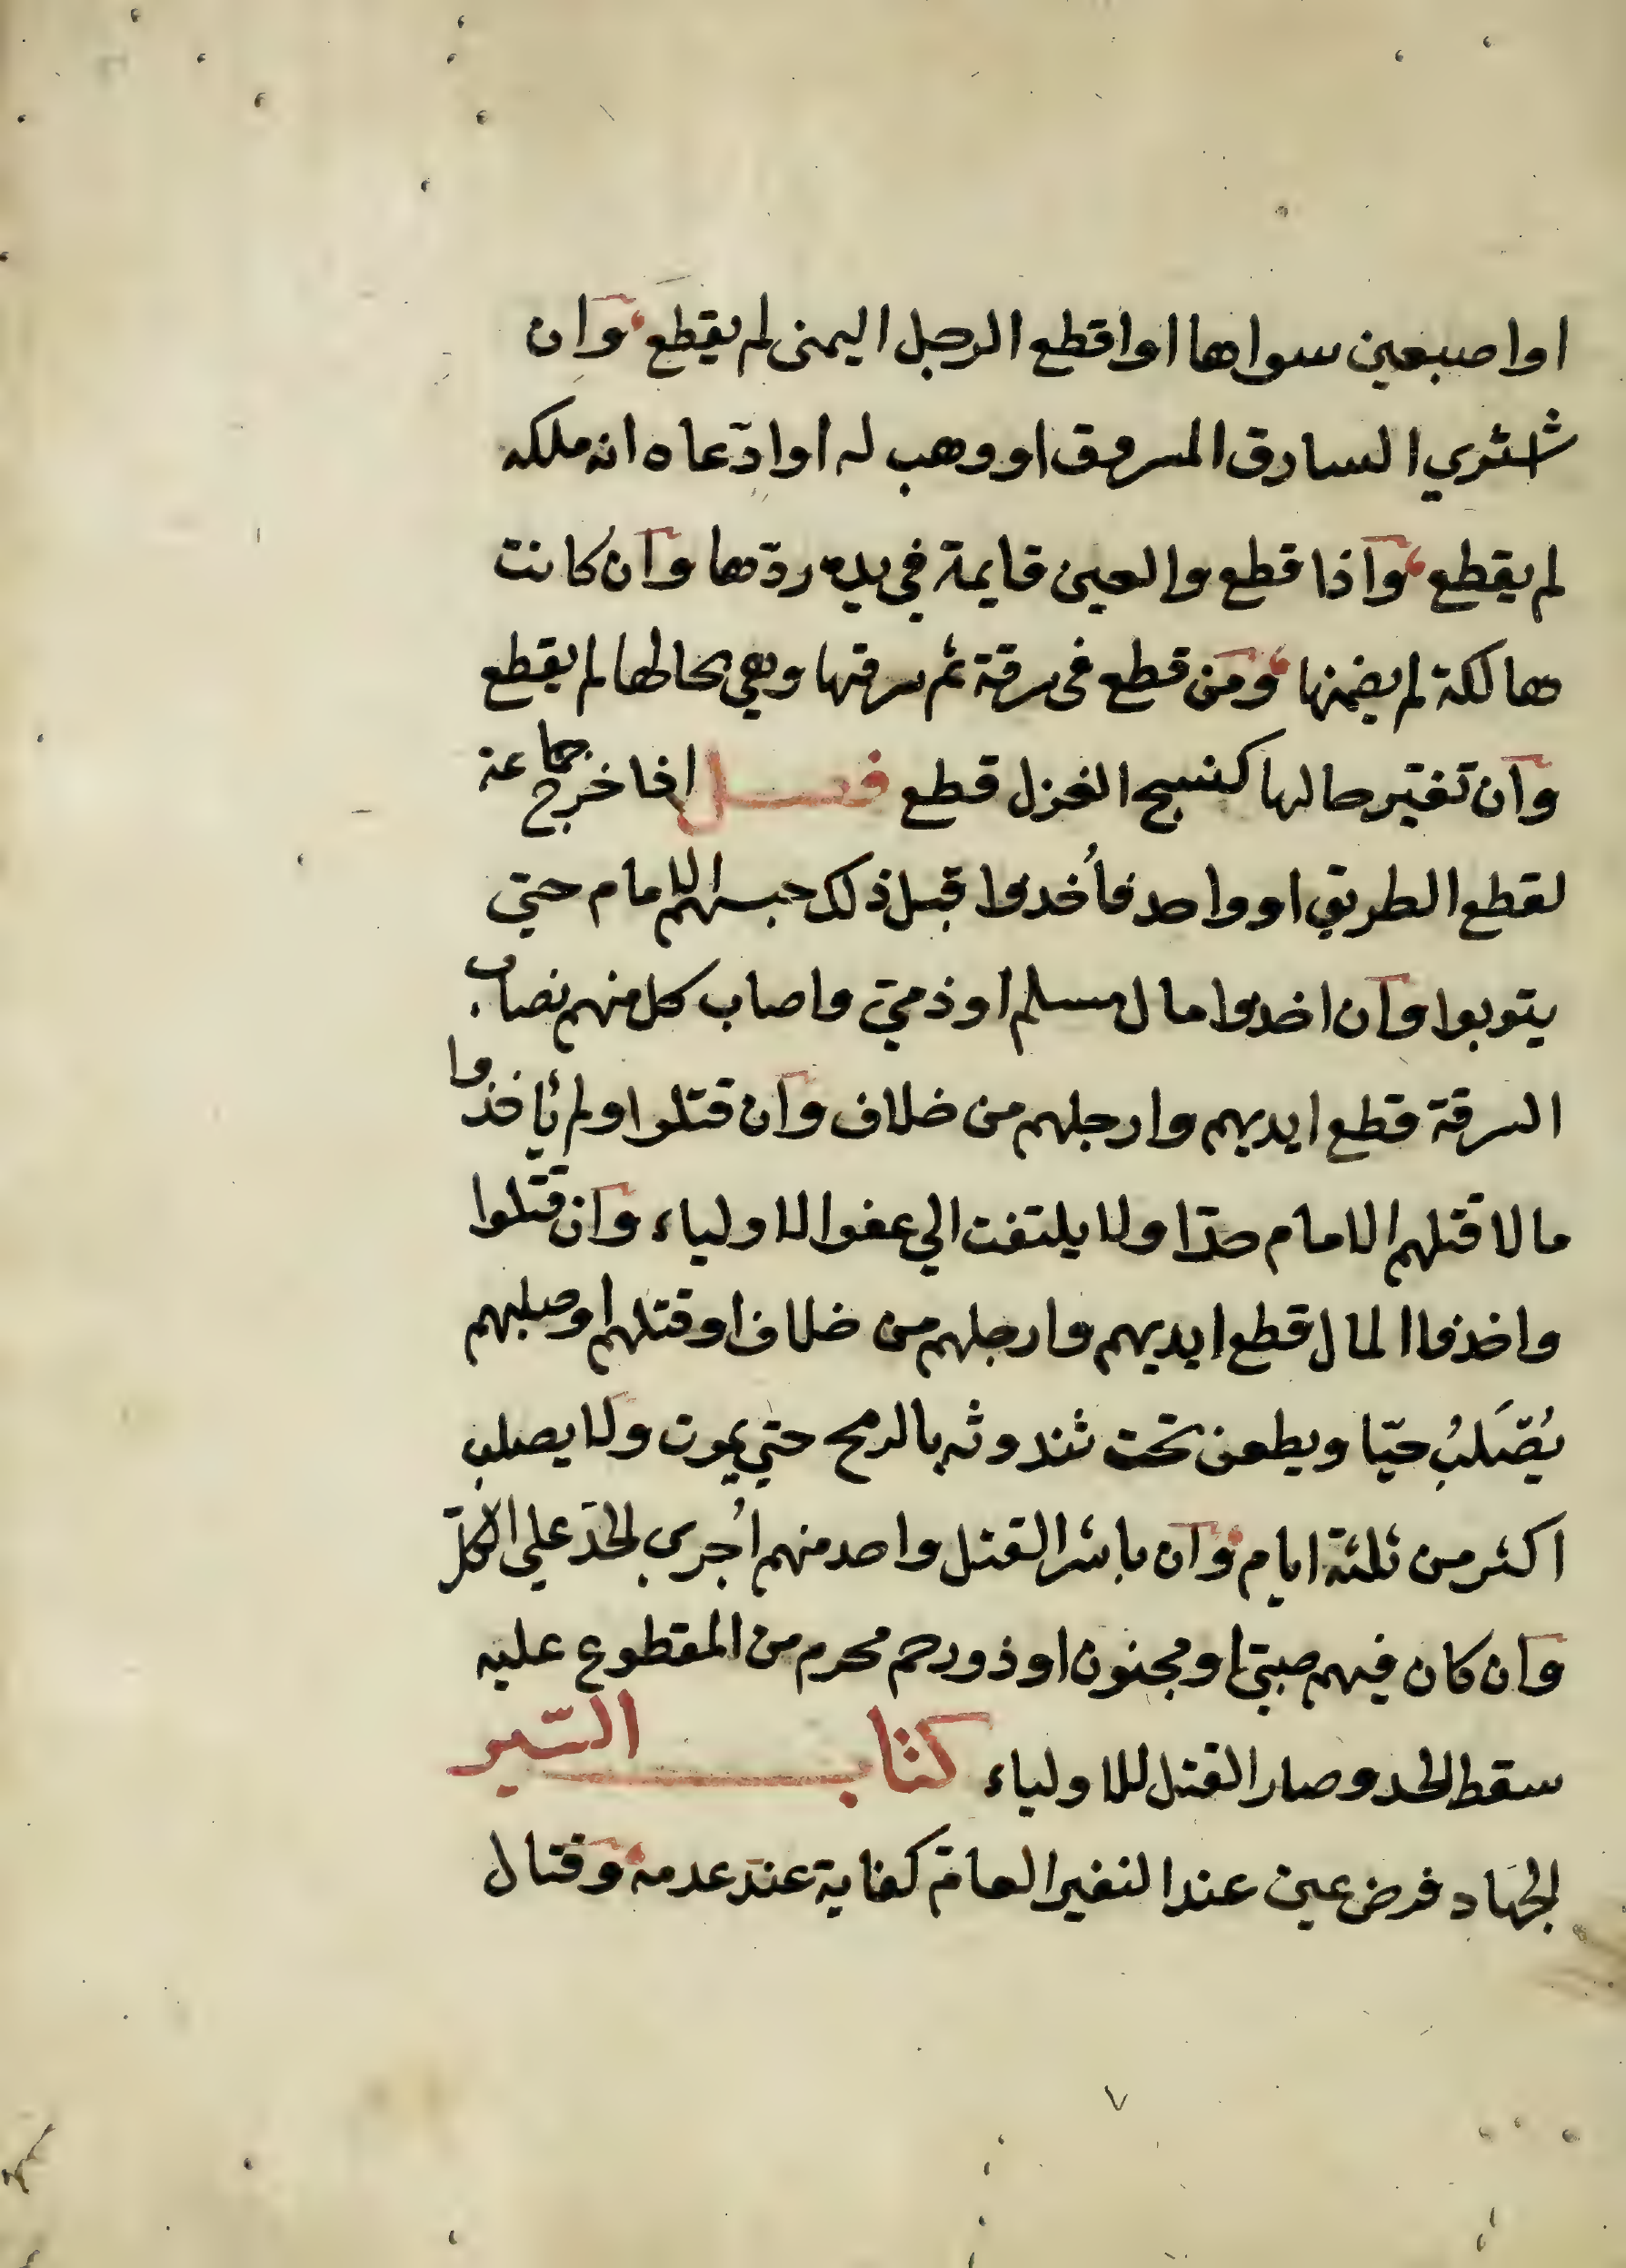 او اصبعين سواها او اقطع الرجل اليمنى لم يقطع وان
اشتري السارق المسروق او وهب له او ادّعاه انه ملكه
لم يقطع واذا قطع والعين قايمة في يده ردّها وان كانت
هالكة لم يضمنها ومن قطع في سرقة ثم سرقها وهي بحالها لم يقطع
وان تغيّر حالها كنسج الغزل قطع فصل اذا خرج جماعة
لقطع الطريق او واحد فأُخذوا قبل ذلك حبسهم الامام حتي
يتوبوا وان اخذوا مال مسلم او ذميّ واصاب كل منهم نصاب
السرقة قطع ايديهم وارجلهم من خلاف وان قتلوا ولم يأخذوا
مالا قتلهم الامام حدّا ولا يلتفت الي عفو الاولياء وان قتلوا
واخذوا المال قطع ايديهم وارجلهم من خلاف او قتلهم او صلبهم
يُصَلبُ حيّا ويطعن تحت ثندوثه بالرمح حتي يموت ولا يصلب
اكثر من ثلثة ايام وان باشر القتل واحد منهم اُجري الحدّ علي الكلّ
وان كان فيهم صبيّ او مجنون او ذو رحم محرم من المقطوع عليه
سقط الحد وصار القتل للاولياء كتاب السّير
الجهاد فرض عين عند النفير العامّ كفاية عند عدمه وقتال
٧